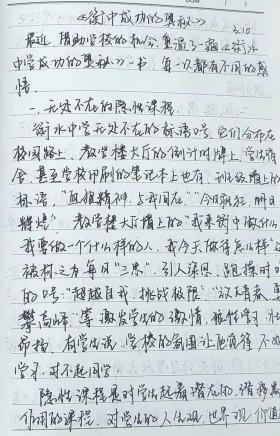 《衡中成功的奥秘》
3.10.
最近,借助学校的机会,重温了一遍《衡水
中学成功的奥秘》一书,每一次都有不同的感
悟。
一、无处不在的隐性课程
衡水中学无处不在的标语口号,它们分布在
校园路上,教学楼大厅的倒计时牌上,学生宿
舍,甚至学校印刷的笔记本上也有。
标语,“ 精神,与我同在”“今日疯狂,明日
辉煌”教学楼大厅墙上的“我来衡中做什么
我要做一个什么样的人,我今天做得怎么样”这
被称之为每日“三思”,引人深思,跑操时
的口号:“超越自我,挑战极限”“放青春,
攀高峰”等激发学生的激情,
有学生说,学校的氛围让他觉得不
学习,对不起同学
隐性课程是对学生起着潜在的,潜移默
作用的课程。对学生的人生观,世界观,价值